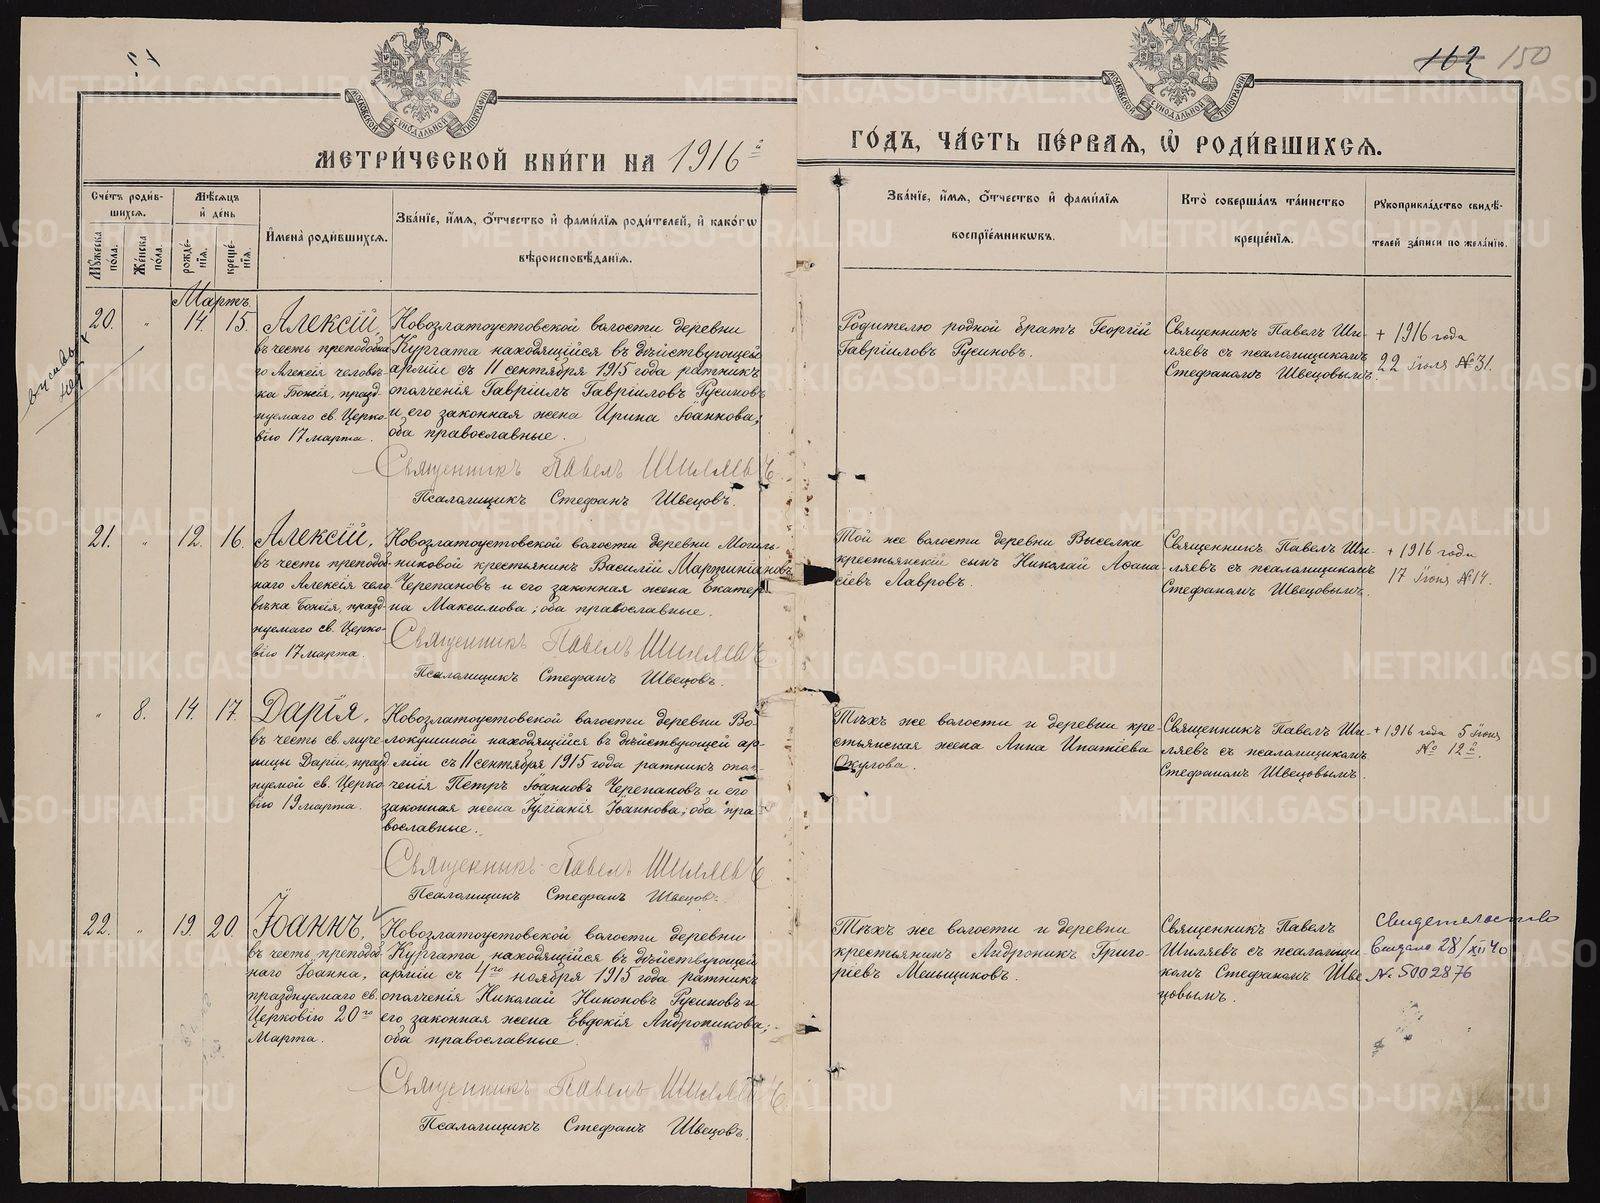 162 150
МОСКОВСКОЙ СѴНОДАЛЬНОЙ ТИПОГРАФІИ
МОСКОВСКОЙ СѴНОДАЛЬНОЙ ТИПОГРАФІИ
МЕТРИ́ЧЕСКОЙ КНИ́ГИ НА 1916й
ГО́ДЪ, ЧА́СТЬ ПЕ́РВАЯ, Ѡ РОДИ́ВШИХСЯ.
Сче́тъ роди́в-
шихся.
Му́жеска пола.
Же́нска пола.
Мѣ́сяцъ
и де́нь
рожде́-
нія.
креще́-
нія.
И́мена роди́вшихся.
Зва́ніе, и́мя, о́тчество и фами́лія роди́телей, и како́гѡ
вѣроисповѣ́данія.
Зва́ніе, и́мя, о́тчество и фами́лія
воспріе́мниковъ.
Кто̀ соверша́лъ та́инство
креще́нія.
Рукоприкла́дство свидѣ́-
телей за́писи по жела́нію.
Мартъ.
20. " 14. 15.
Алексій,
въ честь преподобна-
го Алексія человѣ-
ка Божія, празд-
нуемаго св. Церко-
вію 17 марта.
Новозлатоустовской волости деревни
Кургата находящійся въ дѣйствующей
арміи съ 11 сентября 1915 года ратникъ
ополченія Гавріилъ Гавріиловъ Русиновъ
и его законная жена Ирина Іоаннова;
оба православные.
Священникъ Павелъ Шиляевъ
Псаломщикъ Стефанъ Швецовъ.
Родителю родной братъ Георгій
Гавріиловъ Русиновъ.
Священникъ Павелъ Ши-
ляевъ съ псаломщикомъ
Стефаномъ Швецовымъ.
+ 1916 года
22 Іюля № 31.
21. " 12. 16.
Алексій,
въ честь преподоб-
наго Алексія чело-
вѣка Божія, празд-
нуемаго св. Церко-
вію 17 марта.
Новозлатоустовской волости деревни Могиль-
никовой крестьянинъ Василій Мартиніановъ
Черепановъ и его законная жена Екатери-
на Максимова; оба православные.
Священникъ Павелъ Шиляевъ
Псаломщикъ Стефанъ Швецовъ.
Той же волости деревни Выселка
крестьянскій сынъ Николай Аѳана-
сіевъ Лавровъ.
Священникъ Павелъ Ши-
ляевъ съ псаломщикомъ
Стефаномъ Швецовымъ.
+ 1916 года
17 Іюня № 14.
" 8. 14. 17.
Дарія,
въ честь св. муче-
ницы Даріи, празд-
нуемой св. Церко-
вію 19 марта.
Новозлатоустовской волости деревни Во-
локушиной находящійся въ дѣйствующей ар-
міи съ 11 сентября 1915 года ратникъ опол-
ченія Петръ Іоанновъ Черепановъ и его
законная жена Іуліанія Іоаннова; оба пра-
вославные.
Священникъ Павелъ Шиляевъ
Псаломщикъ Стефанъ Швецовъ.
Тѣхъ же волости и деревни кре-
стьянская жена Анна Ипатіева
Ожгова.
Священникъ Павелъ Ши-
ляевъ съ псаломщикомъ
Стефаномъ Швецовымъ.
+ 1916 года 5 Іюня
№ 12й.
22. " 19. 20.
Іоаннъ,
въ честь преподоб-
наго Іоанна,
празднуемаго св.
Церковію 20го
Марта.
Новозлатоустовской волости деревни
Кургата, находящійся въ дѣйствующей
арміи съ 4го ноября 1915 года ратникъ
ополченія Николай Никоновъ Русиновъ и
его законная жена Евдокія Андроникова;
оба православные.
Священникъ Павелъ Шиляевъ
Псаломщикъ Стефанъ Швецовъ.
Тѣхъ же волости и деревни
крестьянинъ Андроникъ Григо-
ріевъ Меньщиковъ.
Священникъ Павелъ
Шиляевъ съ псаломщи-
комъ Стефаномъ Шве-
цовымъ.
Свидетельство
выдано 28/XII 40
№ 5002876
METRIKI.GASO-URAL.RU